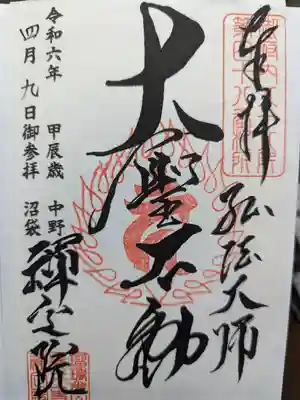 奉拝
弘法大師
大聖不動
令和六年 甲辰歳 中野
四月九日御参拝 沼袋
禪定院